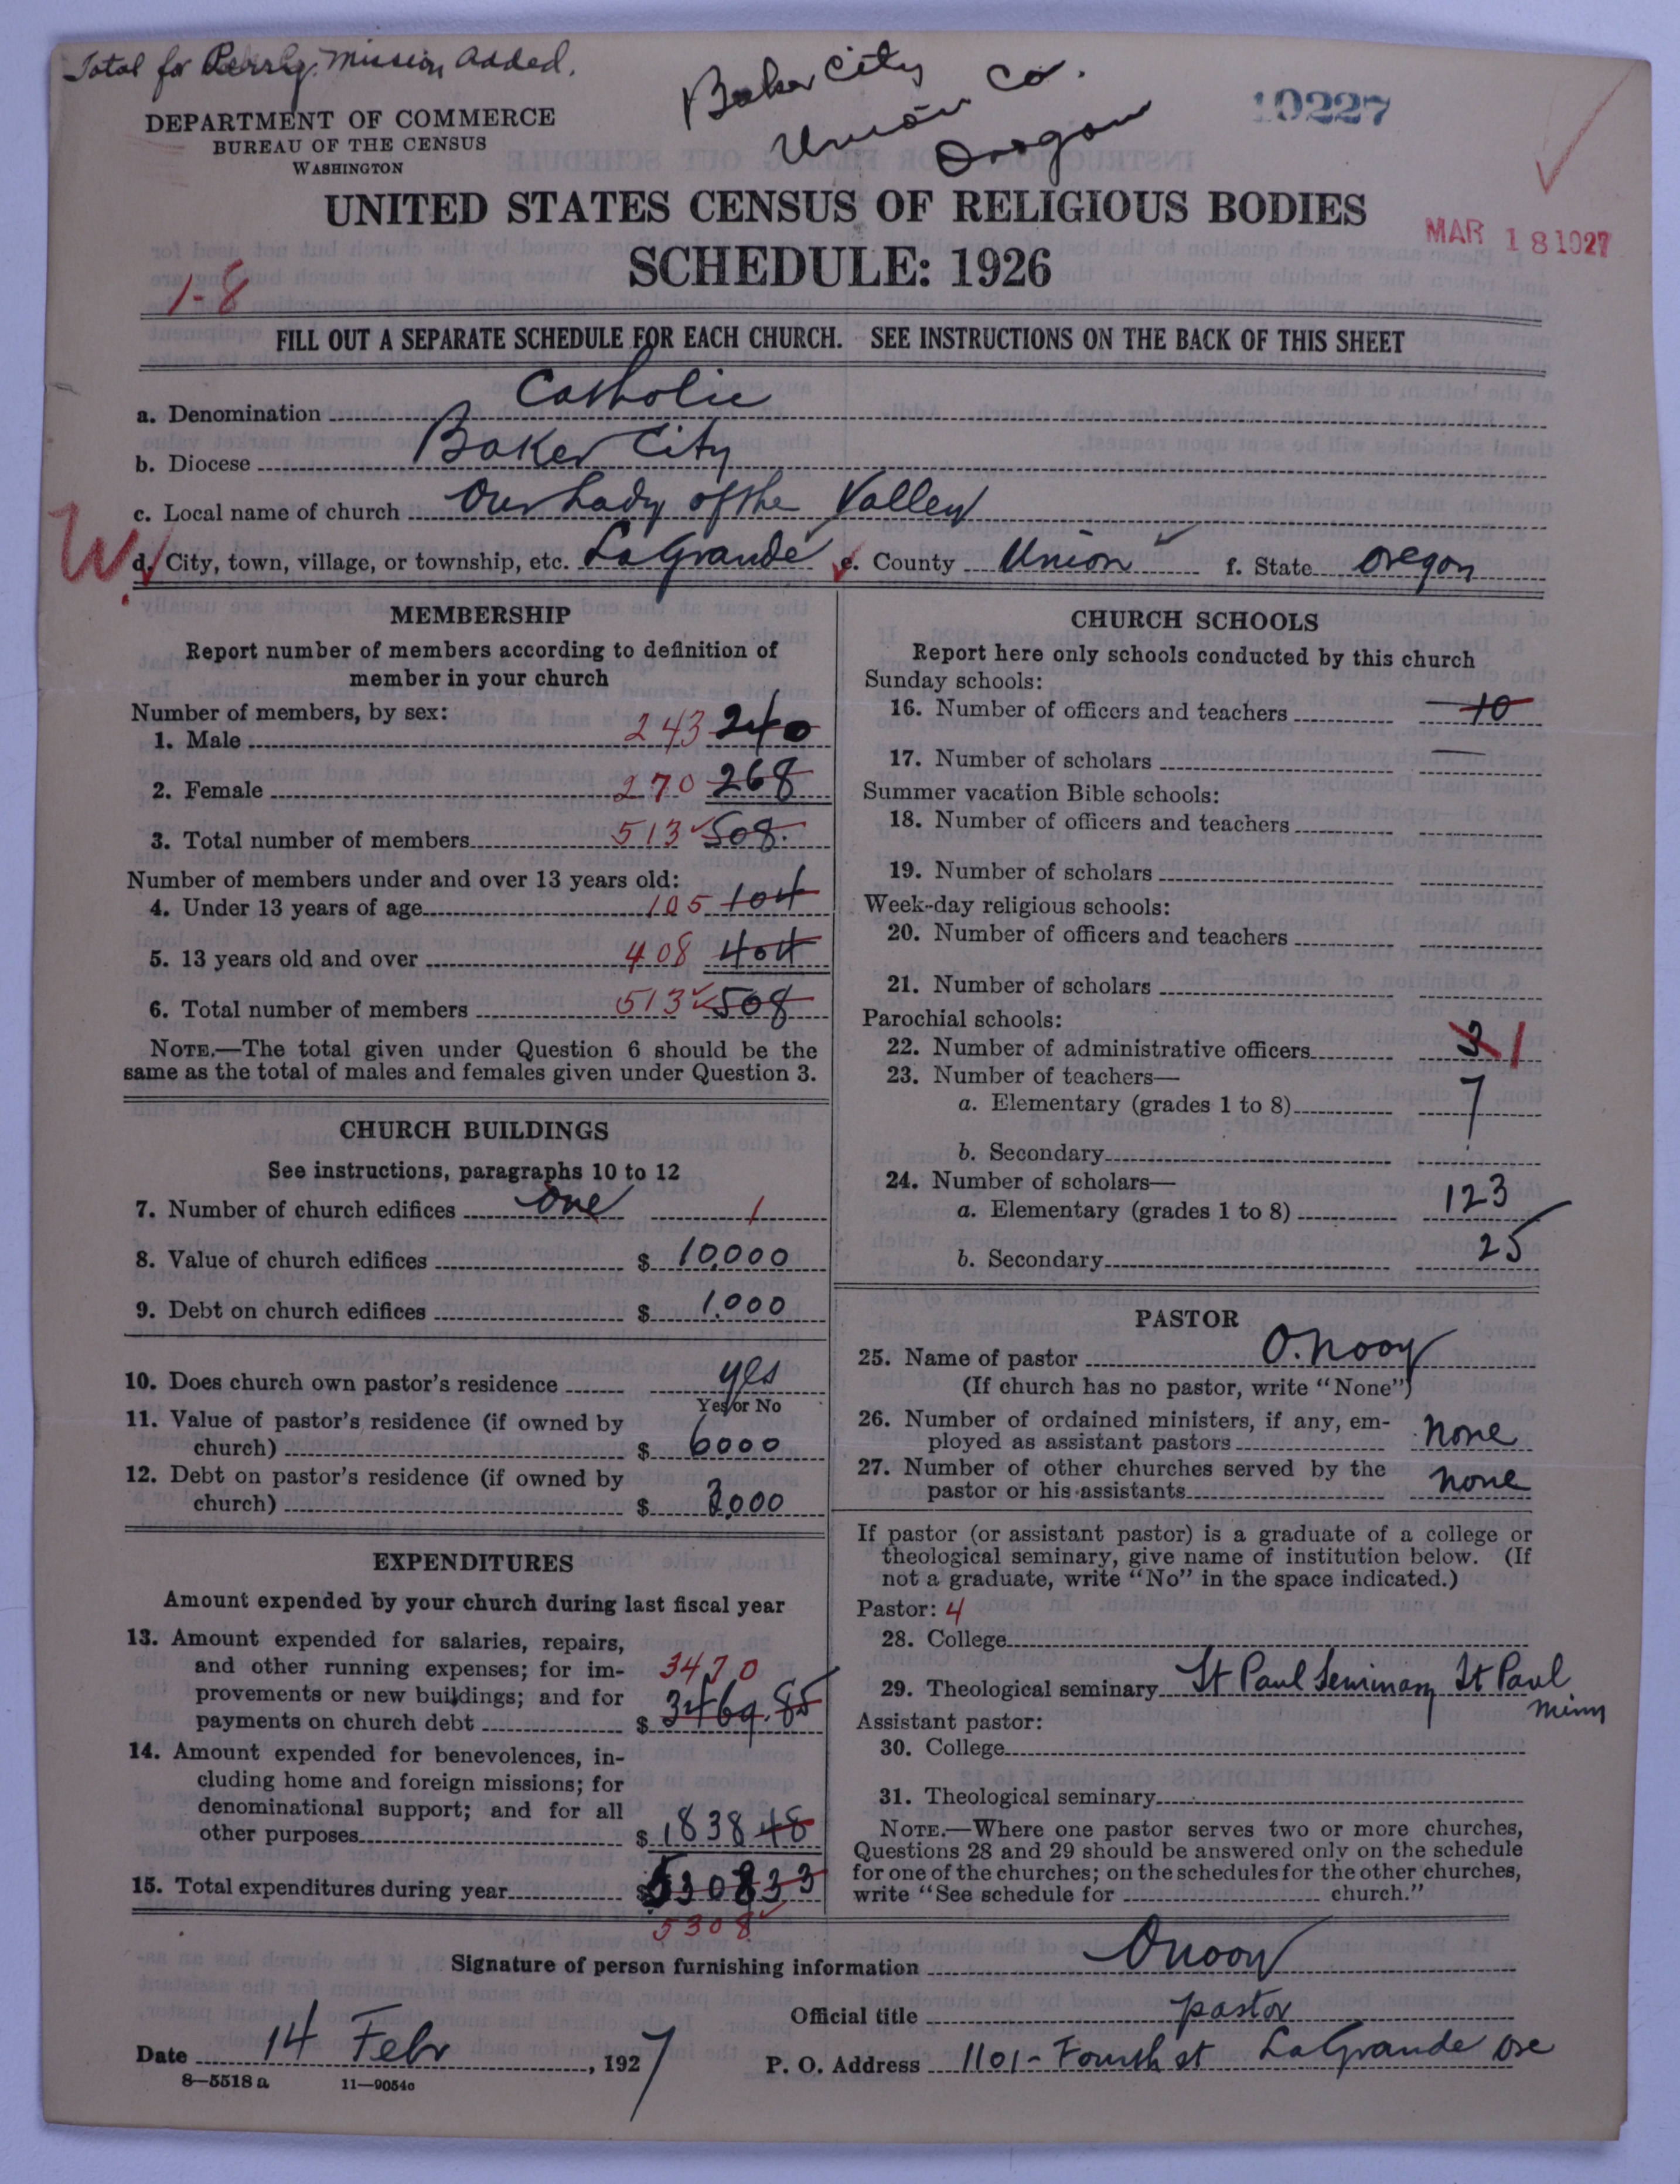 Total for Perry Mission added.
Baker City
Union Co.
Oregon
10227
DEPARTMENT OF COMMERCE
BUREAU OF THE CENSUS
WASHINGTON
UNITED STATES CENSUS OF RELIGIOUS BODIES
MAR 18 1927
SCHEDULE: 1926
1-8
FILL OUT A SEPARATE SCHEDULE FOR EACH CHURCH. SEE INSTRUCTIONS ON THE BACK OF THIS SHEET
a. Denomination Catholic
b. Diocese Baker City
c. Local name of church Our Lady of the Valley
W
d. City, town, village, or township, etc. La Grande e. County Union f. State Oregon
MEMBERSHIP
Report number of members according to definition of
member in your church
Number of members, by sex:
1. Male 243 240
2. Female 270 268
3. Total number of members 513 508.
Number of members under and over 13 years old:
4. Under 13 years of age 105 104
5. 13 years old and over 408 404
6. Total number of members 513 508
NOTE.—The total given under Question 6 should be the
same as the total of males and females given under Question 3.
CHURCH BUILDINGS
See instructions, paragraphs 10 to 12
7. Number of church edifices one 1
8. Value of church edifices $ 10,000
9. Debt on church edifices $ 1.000
10. Does church own pastor's residence yes
Yes or No
11. Value of pastor's residence (if owned by
church) $ 6000
12. Debt on pastor's residence (if owned by
church) $ 3.000
EXPENDITURES
Amount expended by your church during last fiscal year
13. Amount expended for salaries, repairs,
and other running expenses; for im- 3470
provements or new buildings; and for
payments on church debt $ 3469.85
14. Amount expended for benevolences, in-
cluding home and foreign missions; for
denominational support; and for all
other purposes $ 1838 48
15. Total expenditures during year $ 5308 33
5308
CHURCH SCHOOLS
Report here only schools conducted by this church
Sunday schools:
16. Number of officers and teachers 10
17. Number of scholars —
Summer vacation Bible schools:
18. Number of officers and teachers
19. Number of scholars
Week-day religious schools:
20. Number of officers and teachers
21. Number of scholars
Parochial schools:
22. Number of administrative officers 3 1
23. Number of teachers—
a. Elementary (grades 1 to 8) 7
b. Secondary
24. Number of scholars—
a. Elementary (grades 1 to 8) 123
b. Secondary 25
PASTOR
25. Name of pastor O. Nooy
(If church has no pastor, write "None")
26. Number of ordained ministers, if any, em-
ployed as assistant pastors none
27. Number of other churches served by the
pastor or his assistants none
If pastor (or assistant pastor) is a graduate of a college or
theological seminary, give name of institution below. (If
not a graduate, write "No" in the space indicated.)
Pastor: 4
28. College
29. Theological seminary St Paul Seminary St Paul
Minn
Assistant pastor:
30. College
31. Theological seminary
NOTE.—Where one pastor serves two or more churches,
Questions 28 and 29 should be answered only on the schedule
for one of the churches; on the schedules for the other churches,
write "See schedule for church."
Signature of person furnishing information O Nooy
Official title pastor
Date 14 Febr, 1927 P. O. Address 1101- Fourth st La Grande Ore
8—5518 a 11—9054c